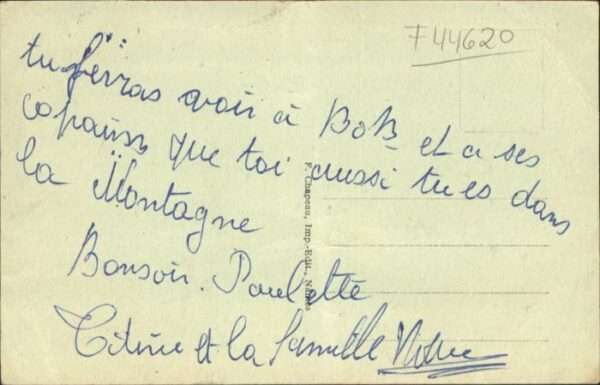 F 44620
tu ferras voir à BoB et a ses
copains que toi aussi tu es dans
la Montagne
Bonsoir. Paulette
Titine et la famille
F. Chapeau, Imp.-Edit., Nantes